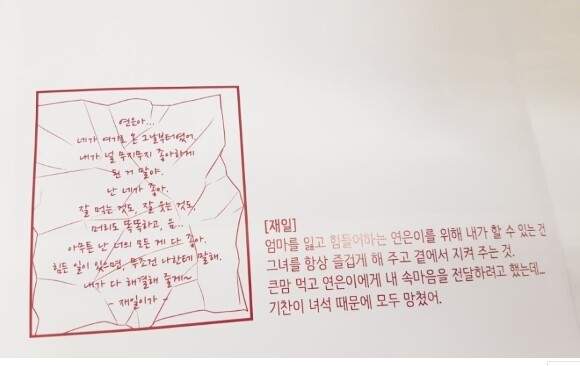 연은아...
네가 여기로 온 그날부터였어.
내가 널 무지무지 좋아하게
된 거 말야.
난 네가 좋아.
잘 먹는 것도, 잘 웃는 것도,
머리도 똑똑하고, 음...
아무튼 난 너의 모든 게 다 좋아.
힘든 일이 있으면, 무조건 나한테 말해.
내가 다 해결해 줄게~
- 재일이가 -
[재일]
엄마를 잃고 힘들어하는 연은이를 위해 내가 할 수 있는 건
그녀를 항상 즐겁게 해 주고 곁에서 지켜 주는 것.
큰맘 먹고 연은이에게 내 속마음을 전달하려고 했는데...
기찬이 녀석 때문에 모두 망쳤어.